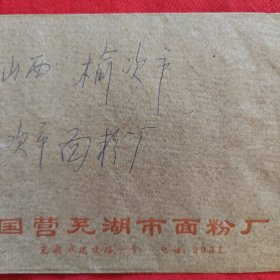 山西 榆次市
次市面粉厂
国营芜湖市面粉厂
芜湖市建设路一号 电话：2931